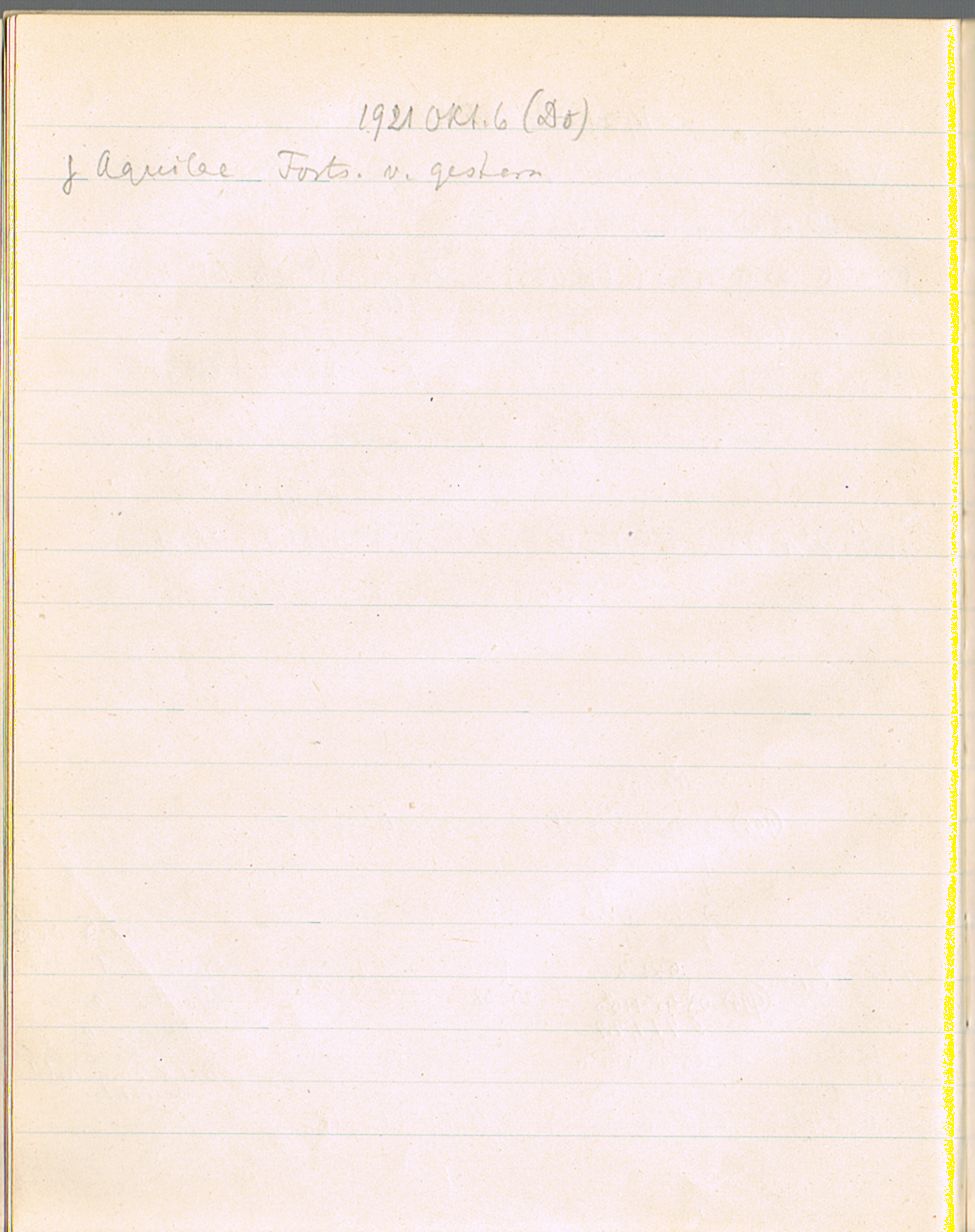 1921 Okt. 6 (Do)
Aquilae Forts. v. gestern